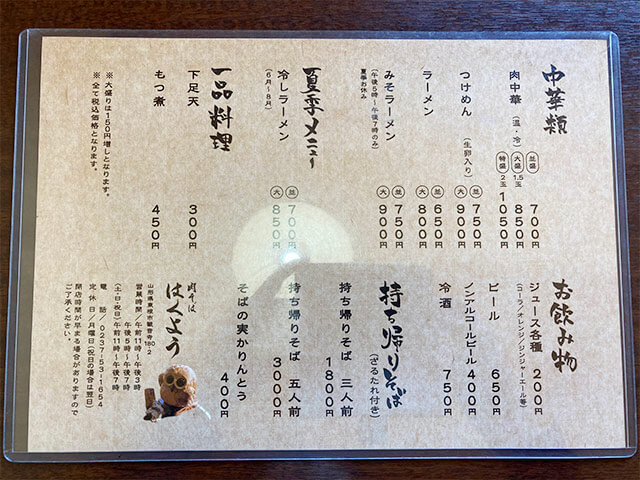 中華類
肉中華(温・冷)
並盛 700円
大盛 1.5玉 850円
特盛 2玉 1050円
つけめん(生卵入り)
並 750円
大 900円
ラーメン
並 650円
大 800円
みそラーメン
並 750円
大 900円
(午後5時〜午後7時のみ)
夏季お休み
夏季メニュー
冷しラーメン
(6月〜8月)
並 700円
大 850円
一品料理
下足天 300円
もつ煮 450円
※大盛りは150円増しとなります。
※全て税込価格となります。
お飲み物
ジュース各種 200円
(コーラ/オレンジ/ジンジャーエール等)
ビール 650円
ノンアルコールビール 400円
冷酒 750円
持ち帰りそば
(ざるたれ付き)
持ち帰りそば 三人前 1800円
持ち帰りそば 五人前 3000円
そばの実かりんとう 400円
肉そば
はくよう
山形県東根市観音寺180-2
営業時間/午前11時〜午後3時
午後5時〜午後7時
(土・日・祝日)午前11時〜午後7時
電話/0237-53-1654
定休日/月曜日(祝日の場合は翌日)
閉店時間が早まる場合がありますので
ご了承ください。